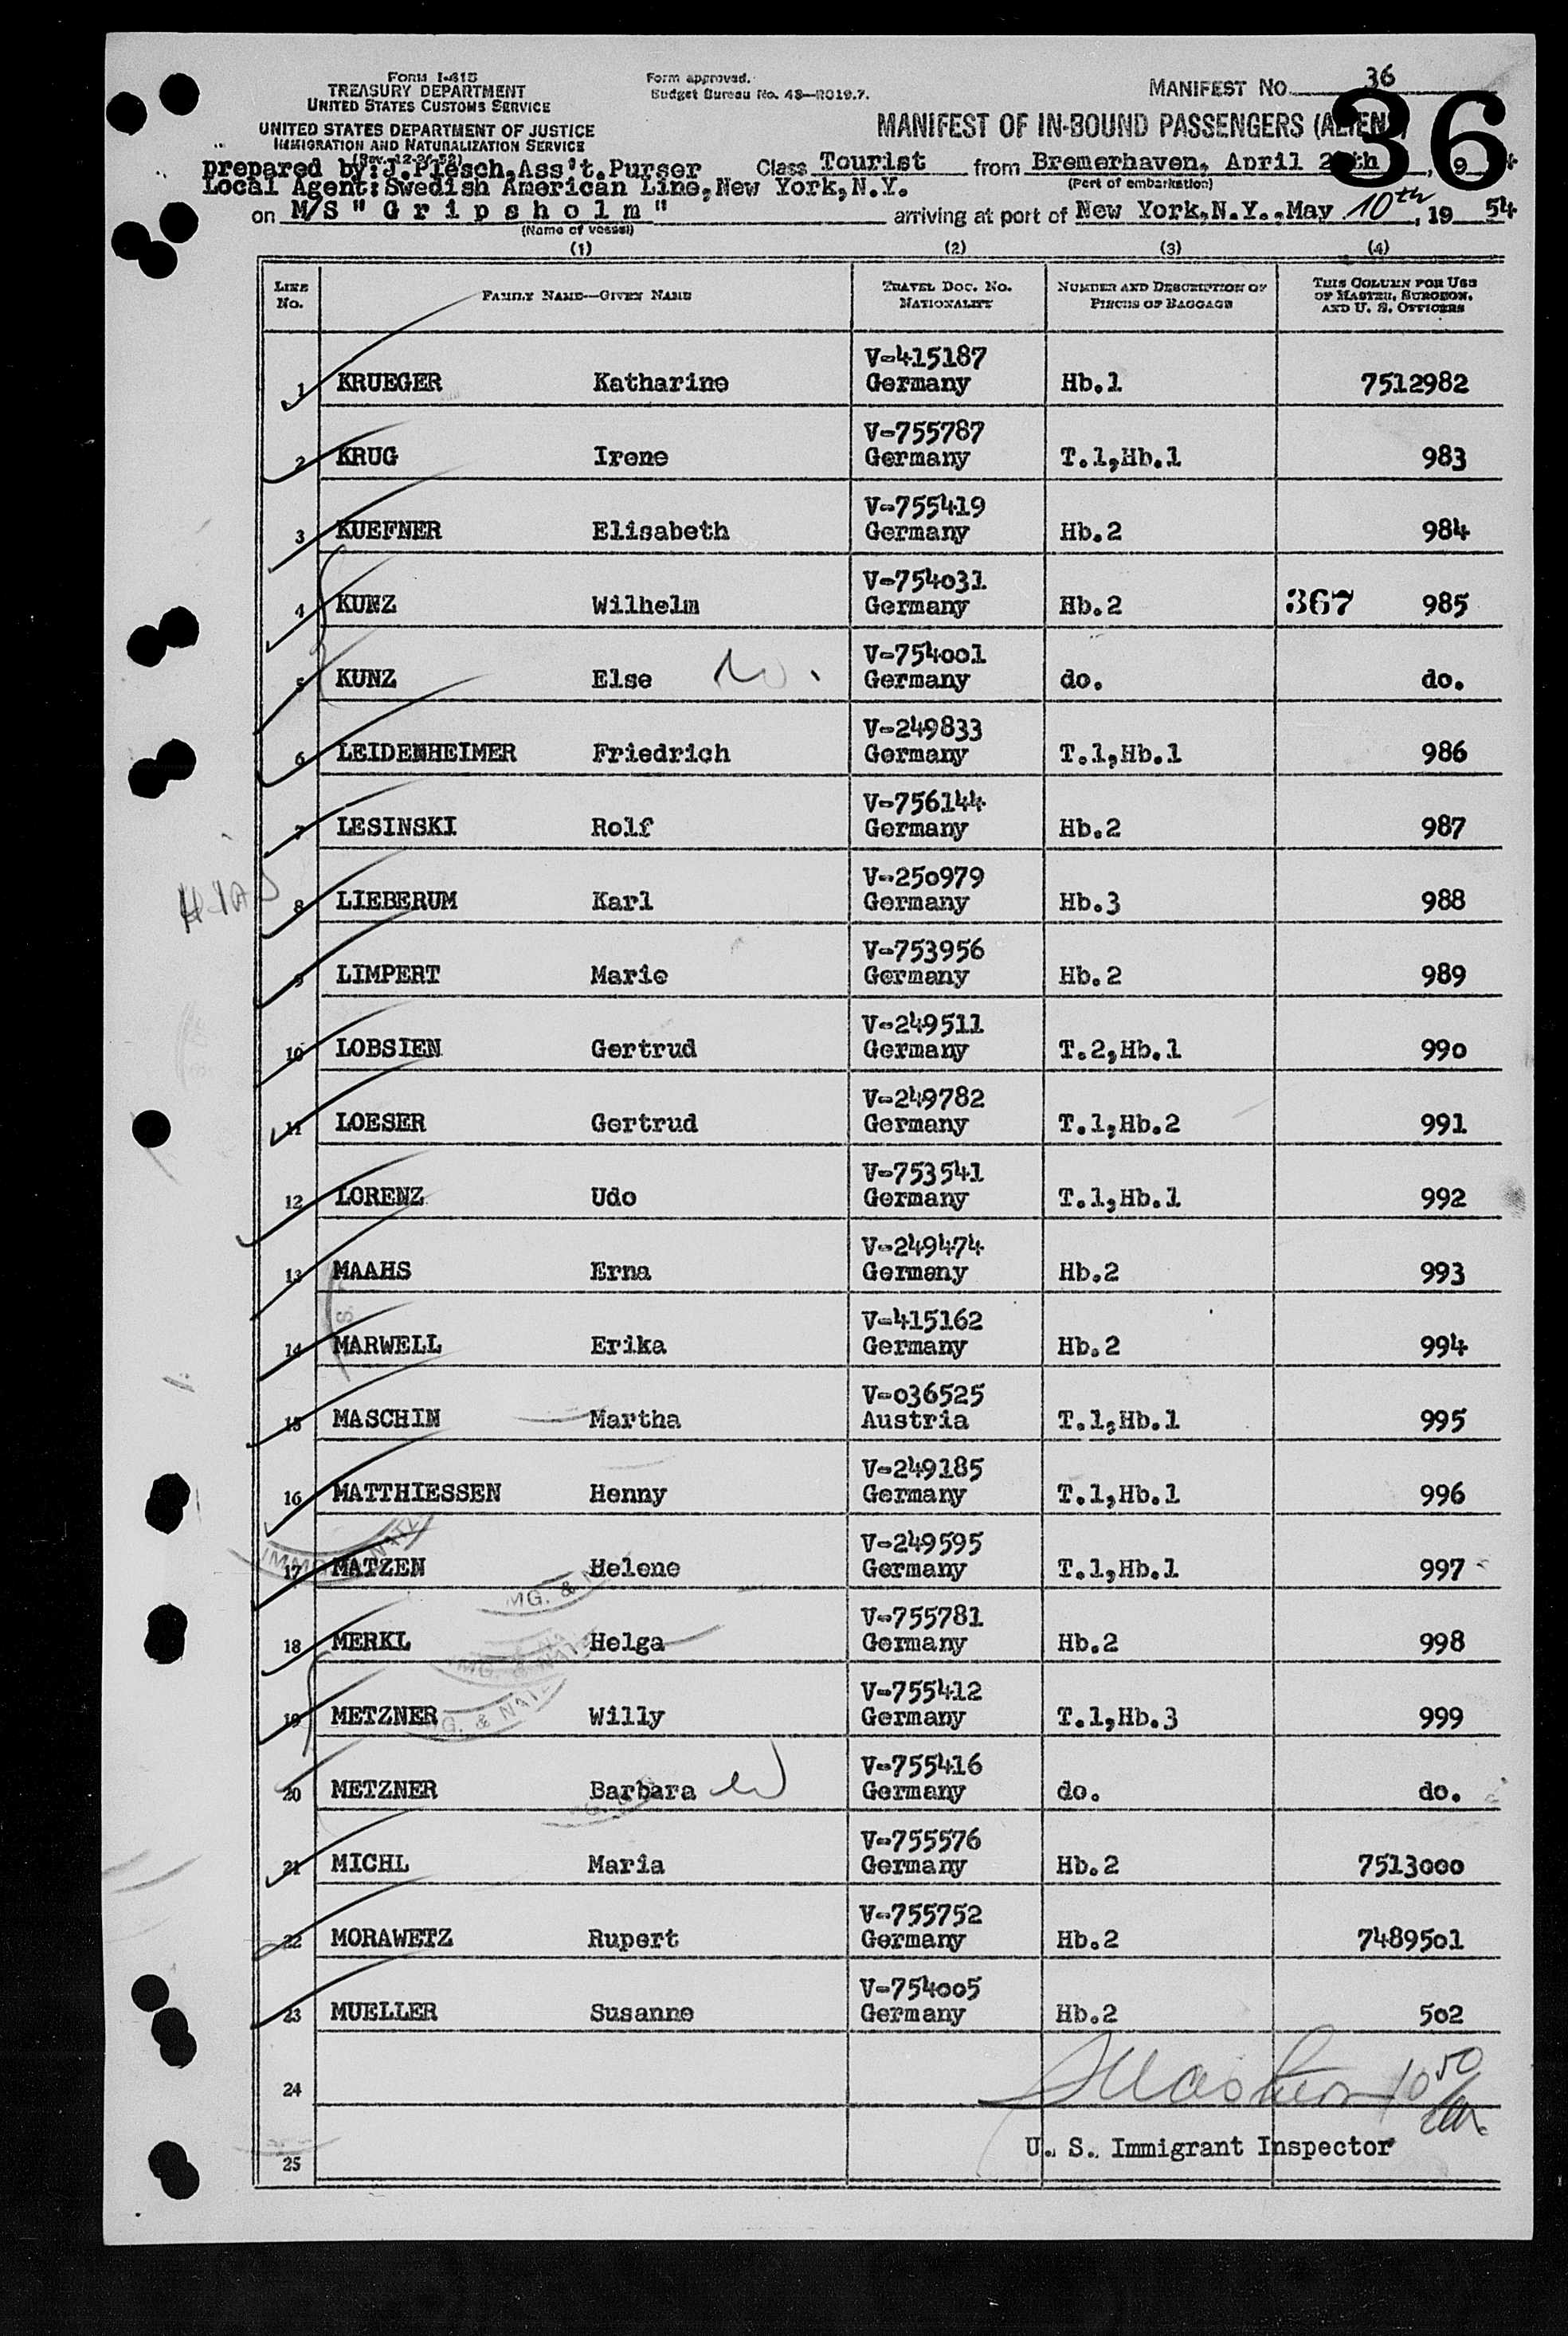 Form I-415
TREASURY DEPARTMENT
UNITED STATES CUSTOMS SERVICE
UNITED STATES DEPARTMENT OF JUSTICE
IMMIGRATION AND NATURALIZATION SERVICE
(Rev. 12-26-52)
Form approved.
Budget Bureau No. 43—R019.7.
MANIFEST NO. 36
MANIFEST OF IN-BOUND PASSENGERS (ALIENS)
36
prepared by:J.Plesch,Ass't.Purser Class Tourist from Bremerhaven, April
Local Agent:Swedish American Line,New York,N.Y. (Port of embarkation)
on M/S "Gripsholm" arriving at port of New York,N.Y.,May 10th, 19 54
(Name of vessel)
(1) (2) (3) (4)
LINE No. FAMILY NAME—GIVEN NAME TRAVEL DOC. NO. NATIONALITY NUMBER AND DESCRIPTION OF PIECES OF BAGGAGE THIS COLUMN FOR USE OF MASTER, SURGEON, AND U. S. OFFICERS
V-415187
1 KRUEGER Katharine Germany Hb.1 7512982
V-755787
2 KRUG Irene Germany T.1,Hb.1 983
V-755419
3 KUEFNER Elisabeth Germany Hb.2 984
V-754031
4 KUNZ Wilhelm Germany Hb.2 367 985
V-754001
5 KUNZ Else Germany do. do.
V-249833
6 LEIDENHEIMER Friedrich Germany T.1,Hb.1 986
V-756144
7 LESINSKI Rolf Germany Hb.2 987
V-250979
HIAS 8 LIEBERUM Karl Germany Hb.3 988
V-753956
9 LIMPERT Marie Germany Hb.2 989
V-249511
10 LOBSIEN Gertrud Germany T.2,Hb.1 990
V-249782
11 LOESER Gertrud Germany T.1,Hb.2 991
V-753541
12 LORENZ Udo Germany T.1,Hb.1 992
V-249474
13 MAAHS Erna Germany Hb.2 993
V-415162
14 MARWELL Erika Germany Hb.2 994
V-036525
15 MASCHIN Martha Austria T.1,Hb.1 995
V-249185
16 MATTHIESSEN Henny Germany T.1,Hb.1 996
V-249595
17 MATZEN Helene Germany T.1,Hb.1 997
V-755781
18 MERKL Helga Germany Hb.2 998
V-755412
19 METZNER Willy Germany T.1,Hb.3 999
V-755416
20 METZNER Barbara Germany do. do.
V-755576
21 MICHL Maria Germany Hb.2 7513000
V-755752
22 MORAWETZ Rupert Germany Hb.2 7489501
V-754005
23 MUELLER Susanne Germany Hb.2 502
24
U. S. Immigrant Inspector
25